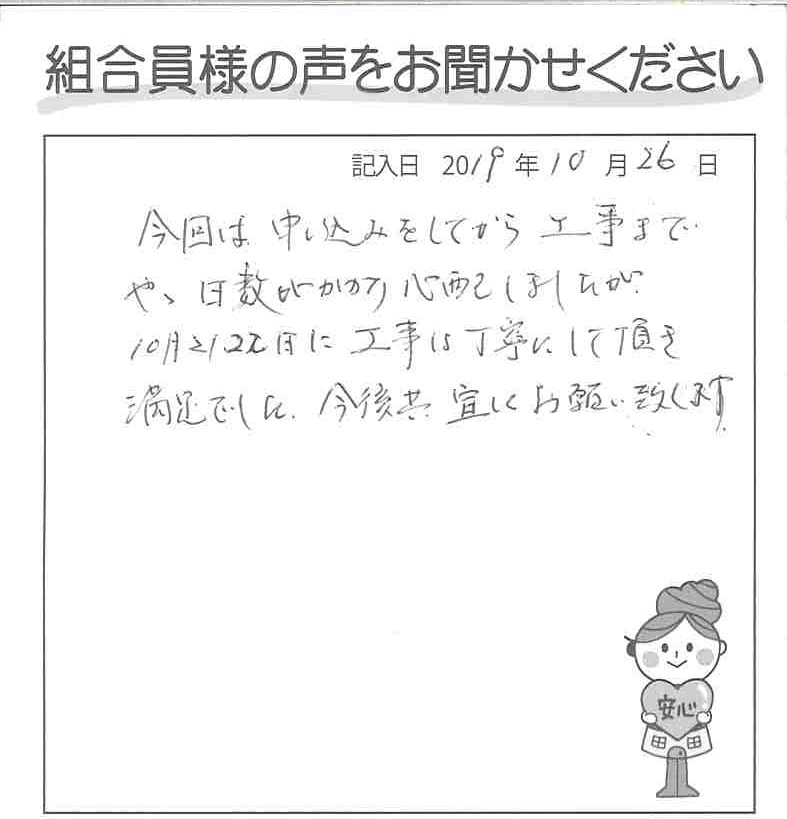 組合員様の声をお聞かせください
記入日 2019年10月26日
今回は申し込みをしてから工事まで
やゝ日数がかかり心配しましたが
10月21.22日に工事は丁寧にして頂き
満足でした。今後共宜しくお願い致します
安心